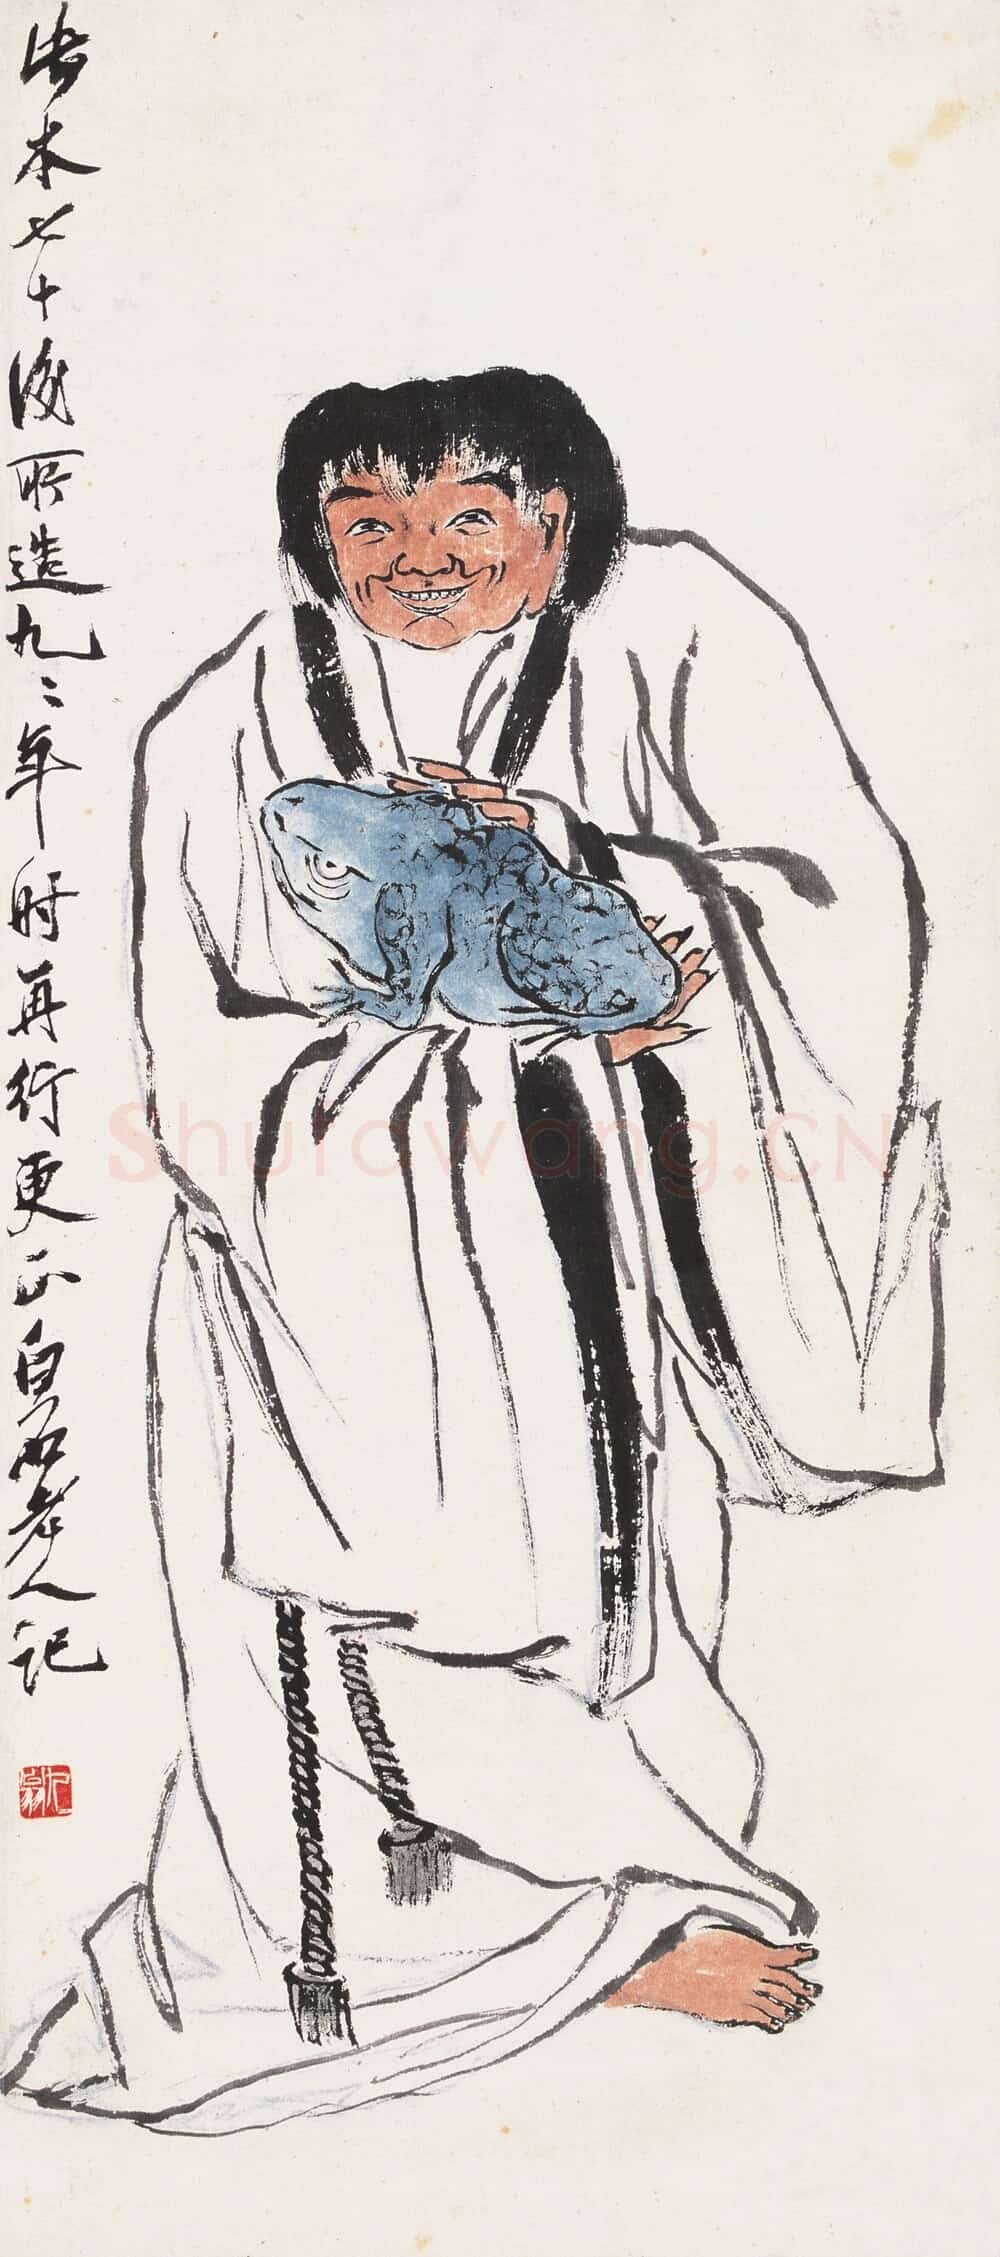 此本七十後所造九二年时再行更正白石老人記
Shufawang.CN